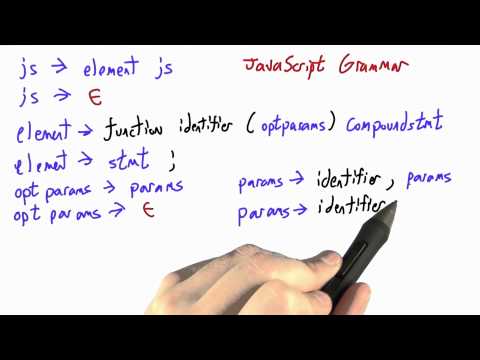 js → element js
JavaScript Grammar
js → ε
element → function identifier ( optparams ) compoundstmt
element → stmt ;
opt params → params
params → identifier , params
opt params → ε
params → identifier